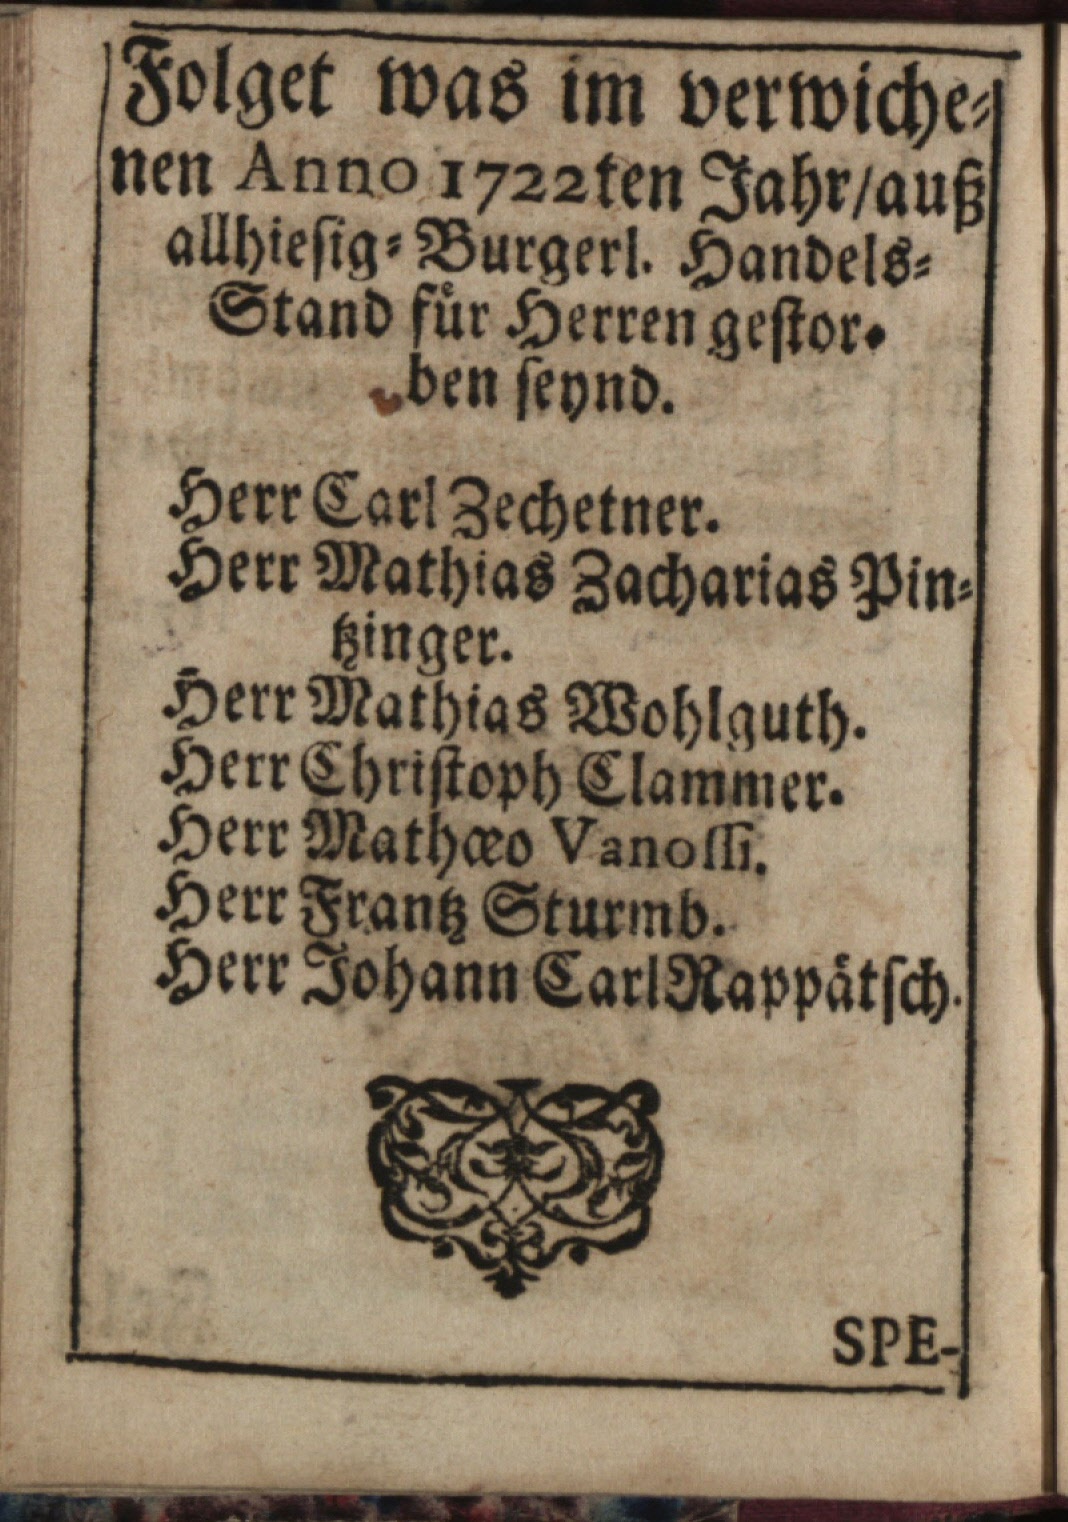 Folget was im verwiche-
nen Anno 1722ten Jahr/auß
allhiesig-Burgerl. Handels-
Stand für Herren gestor-
ben seynd.
Herr Carl Zechetner.
Herr Mathias Zacharias Pin-
tzinger.
Herr Mathias Wohlguth.
Herr Christoph Clammer.
Herr Mathœo Vanossi.
Herr Frantz Sturmb.
Herr Johann Carl Rappätsch.
SPE-